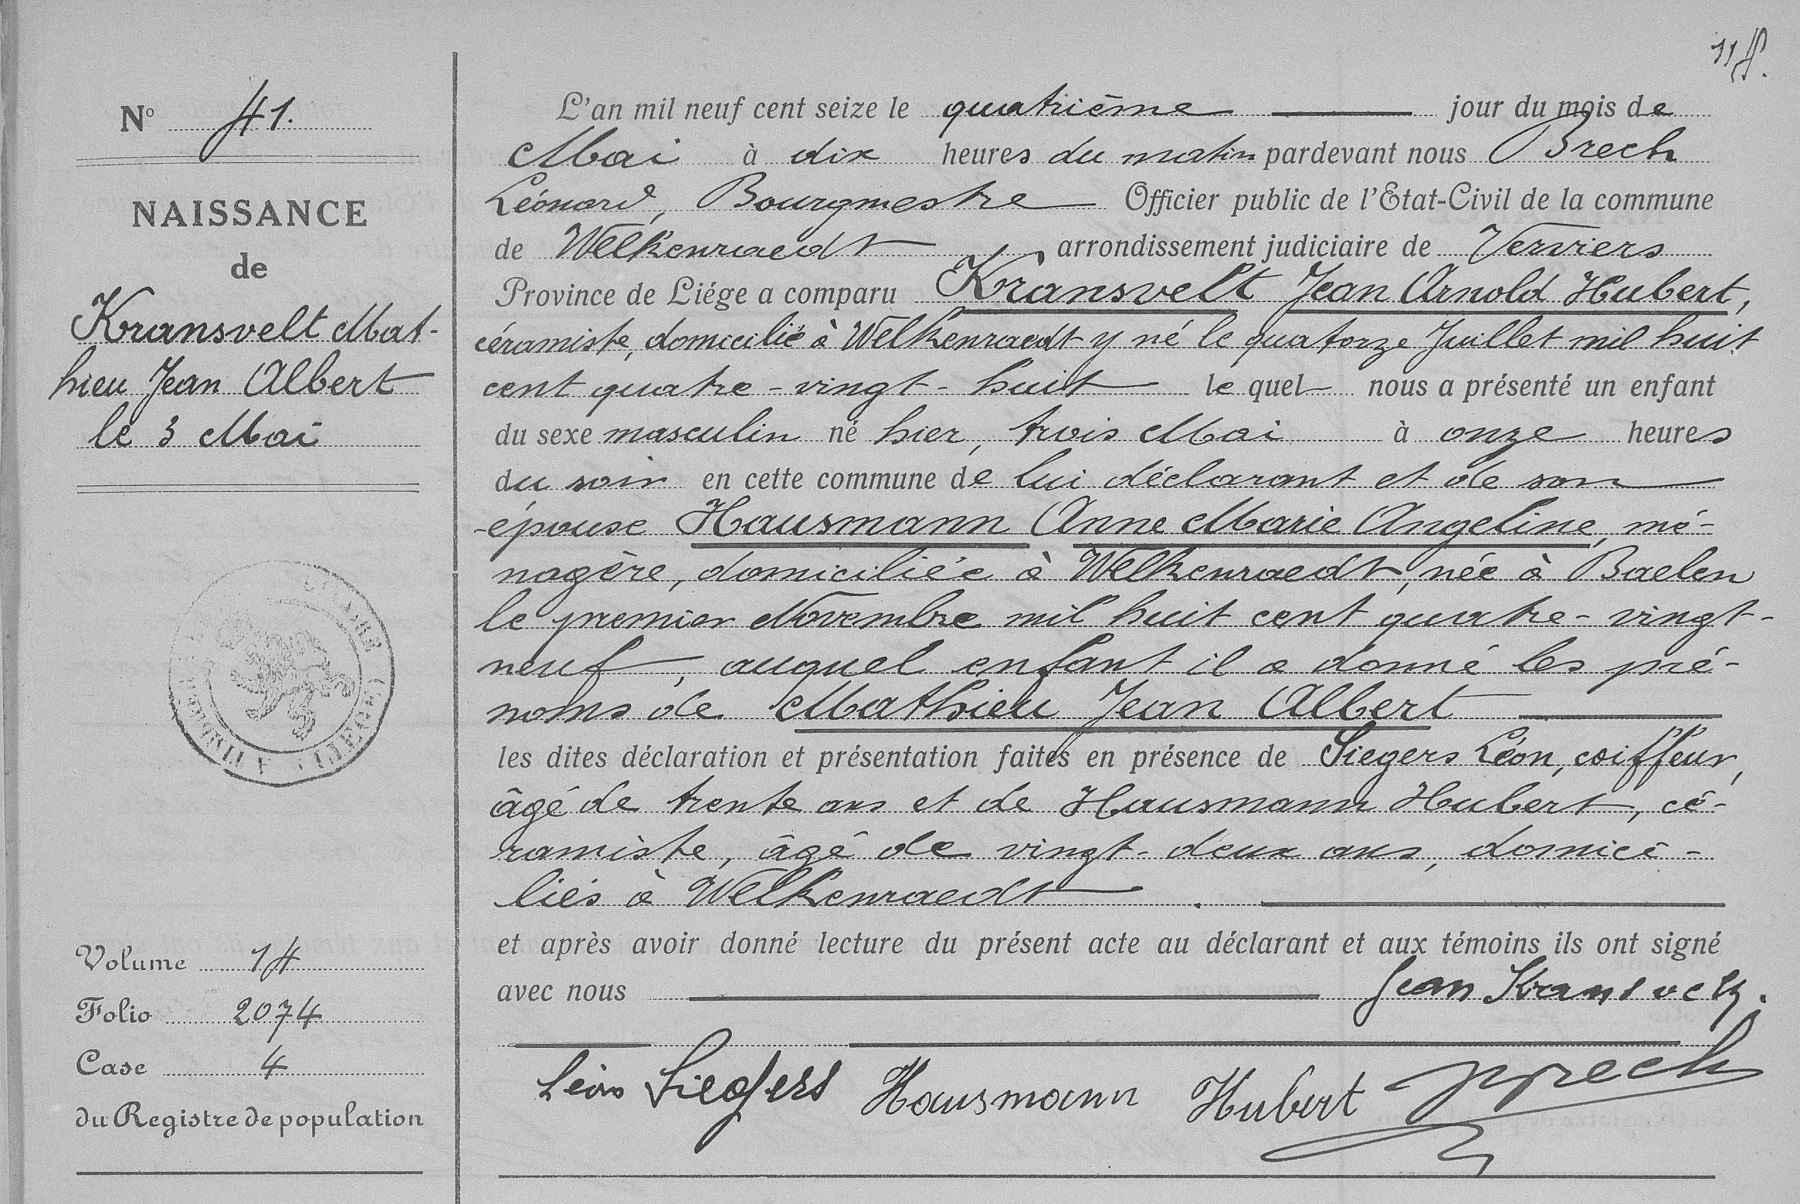 118.
N° 41.
NAISSANCE
de
Kransvelt Mat-
hieu Jean Albert
le 3 Mai
Volume 14
Folio 2074
Case 4
du Registre de population
L'an mil neuf cent seize le quatrième jour du mois de
Mai à dix heures du matin pardevant nous Brech
Léonard, Bourgmestre Officier public de l'Etat-Civil de la commune
de Welkenraedt arrondissement judiciaire de Verviers
Province de Liége a comparu Kransvelt Jean Arnold Hubert,
céramiste, domicilié à Welkenraedt y né le quatorze Juillet mil huit
cent quatre-vingt-huit le quel nous a présenté un enfant
du sexe masculin né hier, trois Mai à onze heures
du soir en cette commune de lui déclarant et de son
épouse Hausmann Anne Marie Angeline, mé-
nagère, domiciliée à Welkenraedt, née à Baelen
le premier Novembre mil huit cent quatre-vingt-
neuf, auquel enfant il a donné les pré-
noms de Mathieu Jean Albert
les dites déclaration et présentation faites en présence de Siegers Léon, coiffeur,
âgé de trente ans et de Hausmann Hubert, cé-
ramiste, âgé de vingt-deux ans, domici-
liés à Welkenraedt.
et après avoir donné lecture du présent acte au déclarant et aux témoins ils ont signé
avec nous Jean Kransvelt.
Léon Siegers Hausmann Hubert Brech